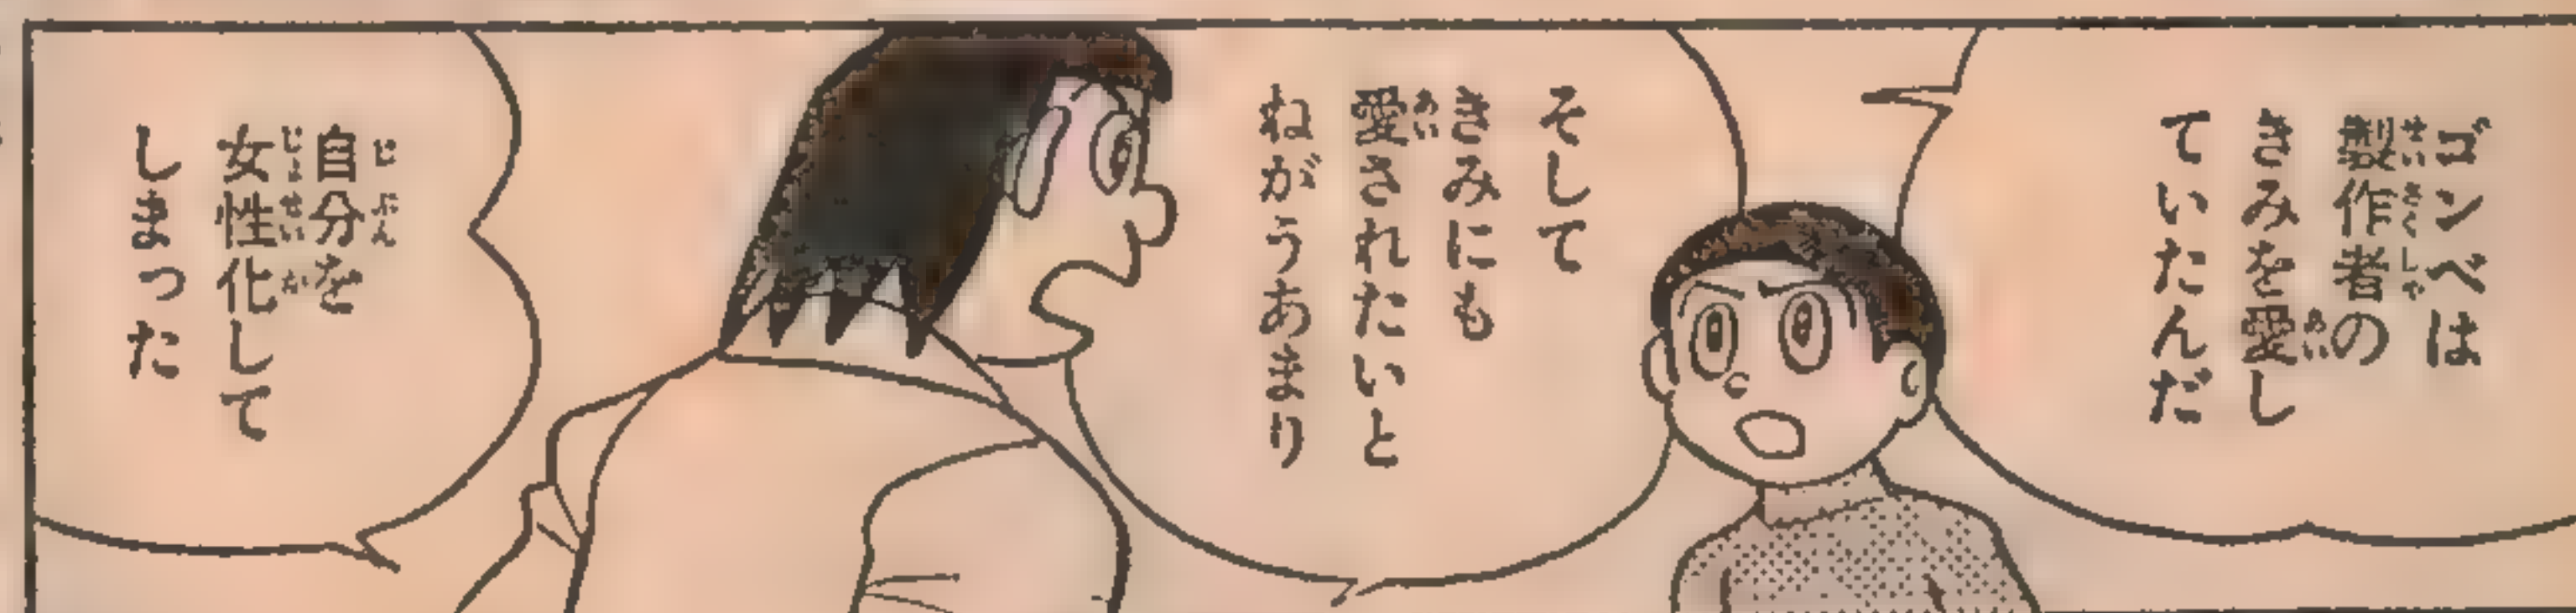 ゴンベは
製作者の
きみを愛し
ていたんだ
そして
きみにも
愛されたいと
ねがうあまり
自分を
女性化して
しまった